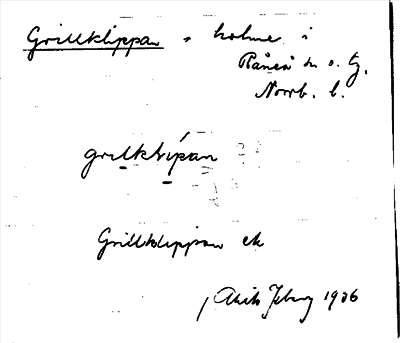 Grillklippan, holme i
Råneå sn o. tg.
Norrb. l.
grilklipan
Grillklippan ek
1936